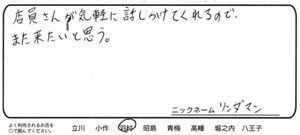 店員さんが気軽に話しかけてくれるので、
また来たいと思う。
ニックネーム リンダマン
よく利用されるお店を
○で囲んでください。 立川 小作 羽村 昭島 青梅 高幡 堀之内 八王子